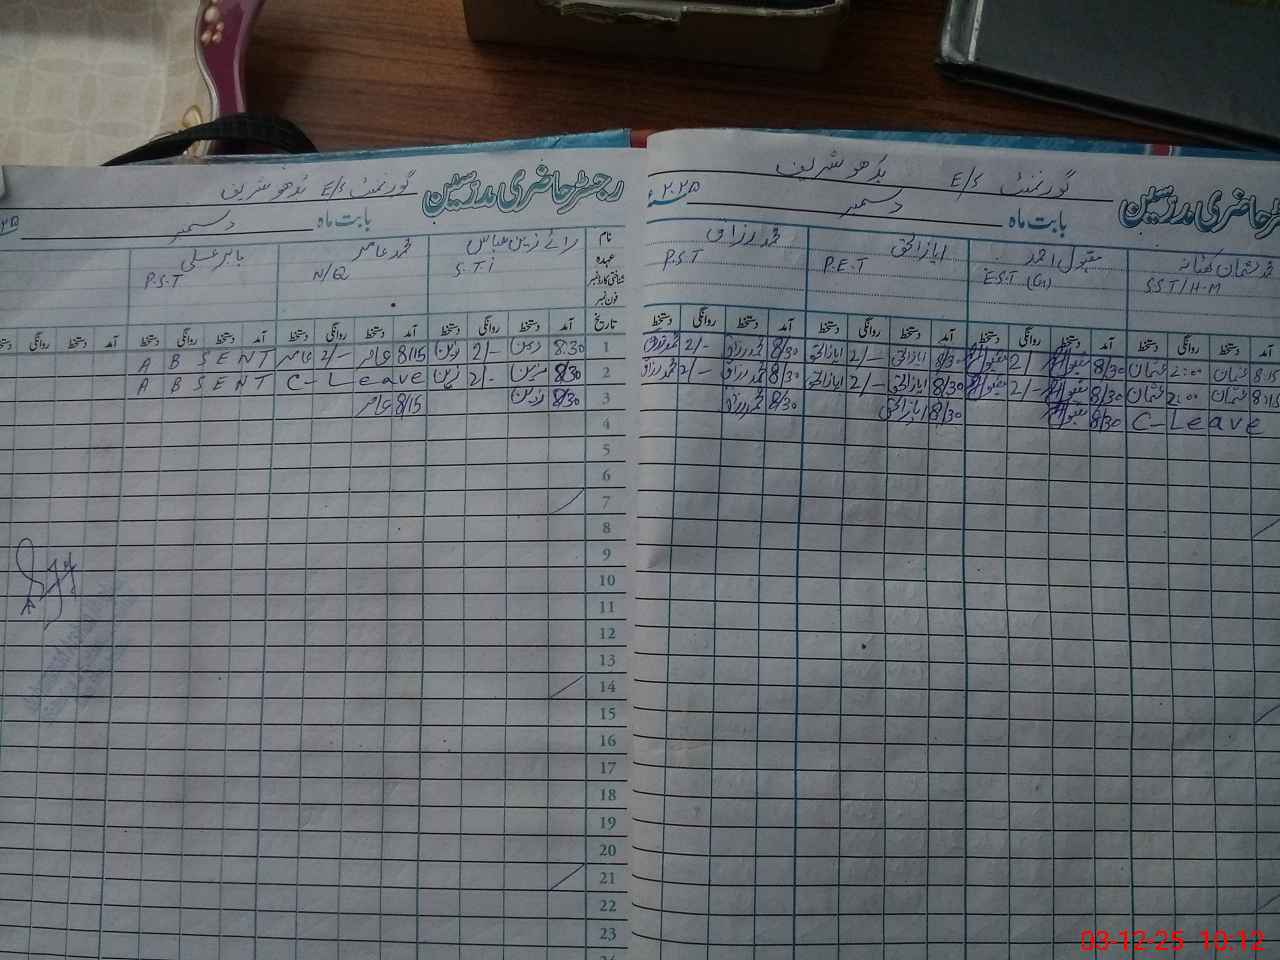 رجسٹر حاضری مدرسین گورنمنٹ E/S بُدھو شریف
بابت ماہ دسمبر ۲۰۲۵ء
محمد عثمان
SST/H-M
مقبول احمد
E.S.T (G)
ایاز الحق
P.E.T
محمد رزاق
P.S.T
آمد دستخط روانگی دستخط آمد دستخط روانگی دستخط آمد دستخط روانگی دستخط آمد دستخط روانگی دستخط
8:15 عثمان 2:00 عثمان 8/30 مقبول احمد 2/- مقبول احمد 8/30 ایاز الحق 2/- ایاز الحق 8/30 محمد رزاق 2/- محمد رزاق
8:15 عثمان 2:00 عثمان 8/30 مقبول احمد 2/- مقبول احمد 8/30 ایاز الحق 2/- ایاز الحق 8/30 محمد رزاق 2/- محمد رزاق
C-Leave 8/30 مقبول احمد 8/30 ایاز الحق 8/30 محمد رزاق
رجسٹر حاضری مدرسین گورنمنٹ E/S بُدھو شریف
بابت ماہ دسمبر
نام رائے زین عباس محمد عامر بابر علی
عہدہ S.T.i N/Q P.S.T
شناختی کارڈ نمبر
فون نمبر
تاریخ آمد دستخط روانگی دستخط آمد دستخط روانگی دستخط آمد دستخط روانگی دستخط
1 8:30 زین 2/- زین 8/15 عامر 2/- عامر ABSENT
2 8/30 زین 2/- زین C-Leave ABSENT
3 8/30 زین 8/15 عامر
4
5
6
7
8
9
10
11
12
13
14
15
16
17
18
19
20
21
22
23
03-12-25 10:12